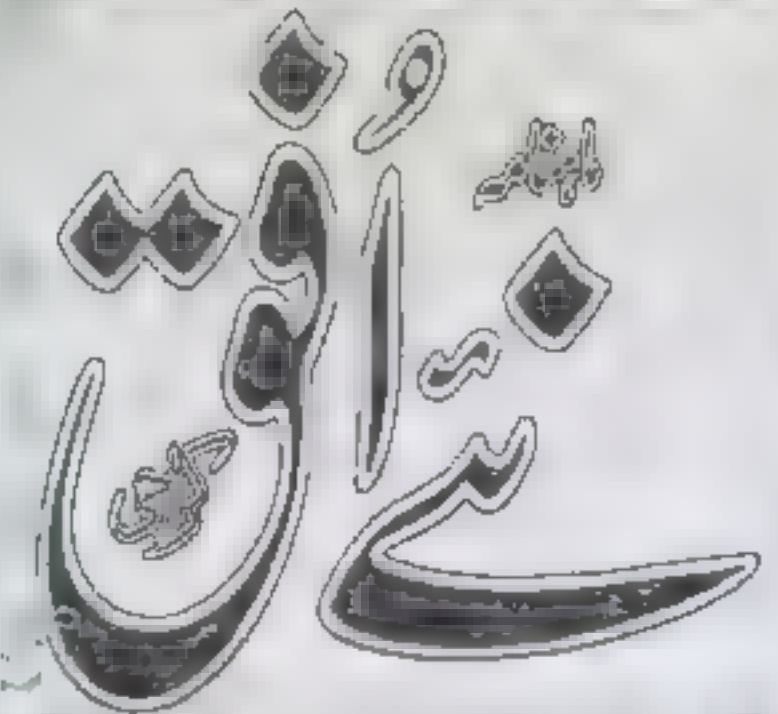 نئے اُفق